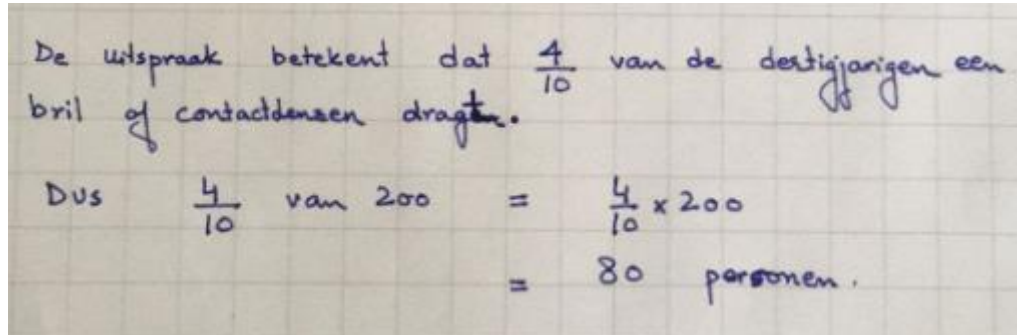 De uitspraak betekent dat 4/10 van de dertigjarigen een
bril of contactlensen dragt.
Dus 4/10 van 200 = 4/10 x 200
= 80 personen.